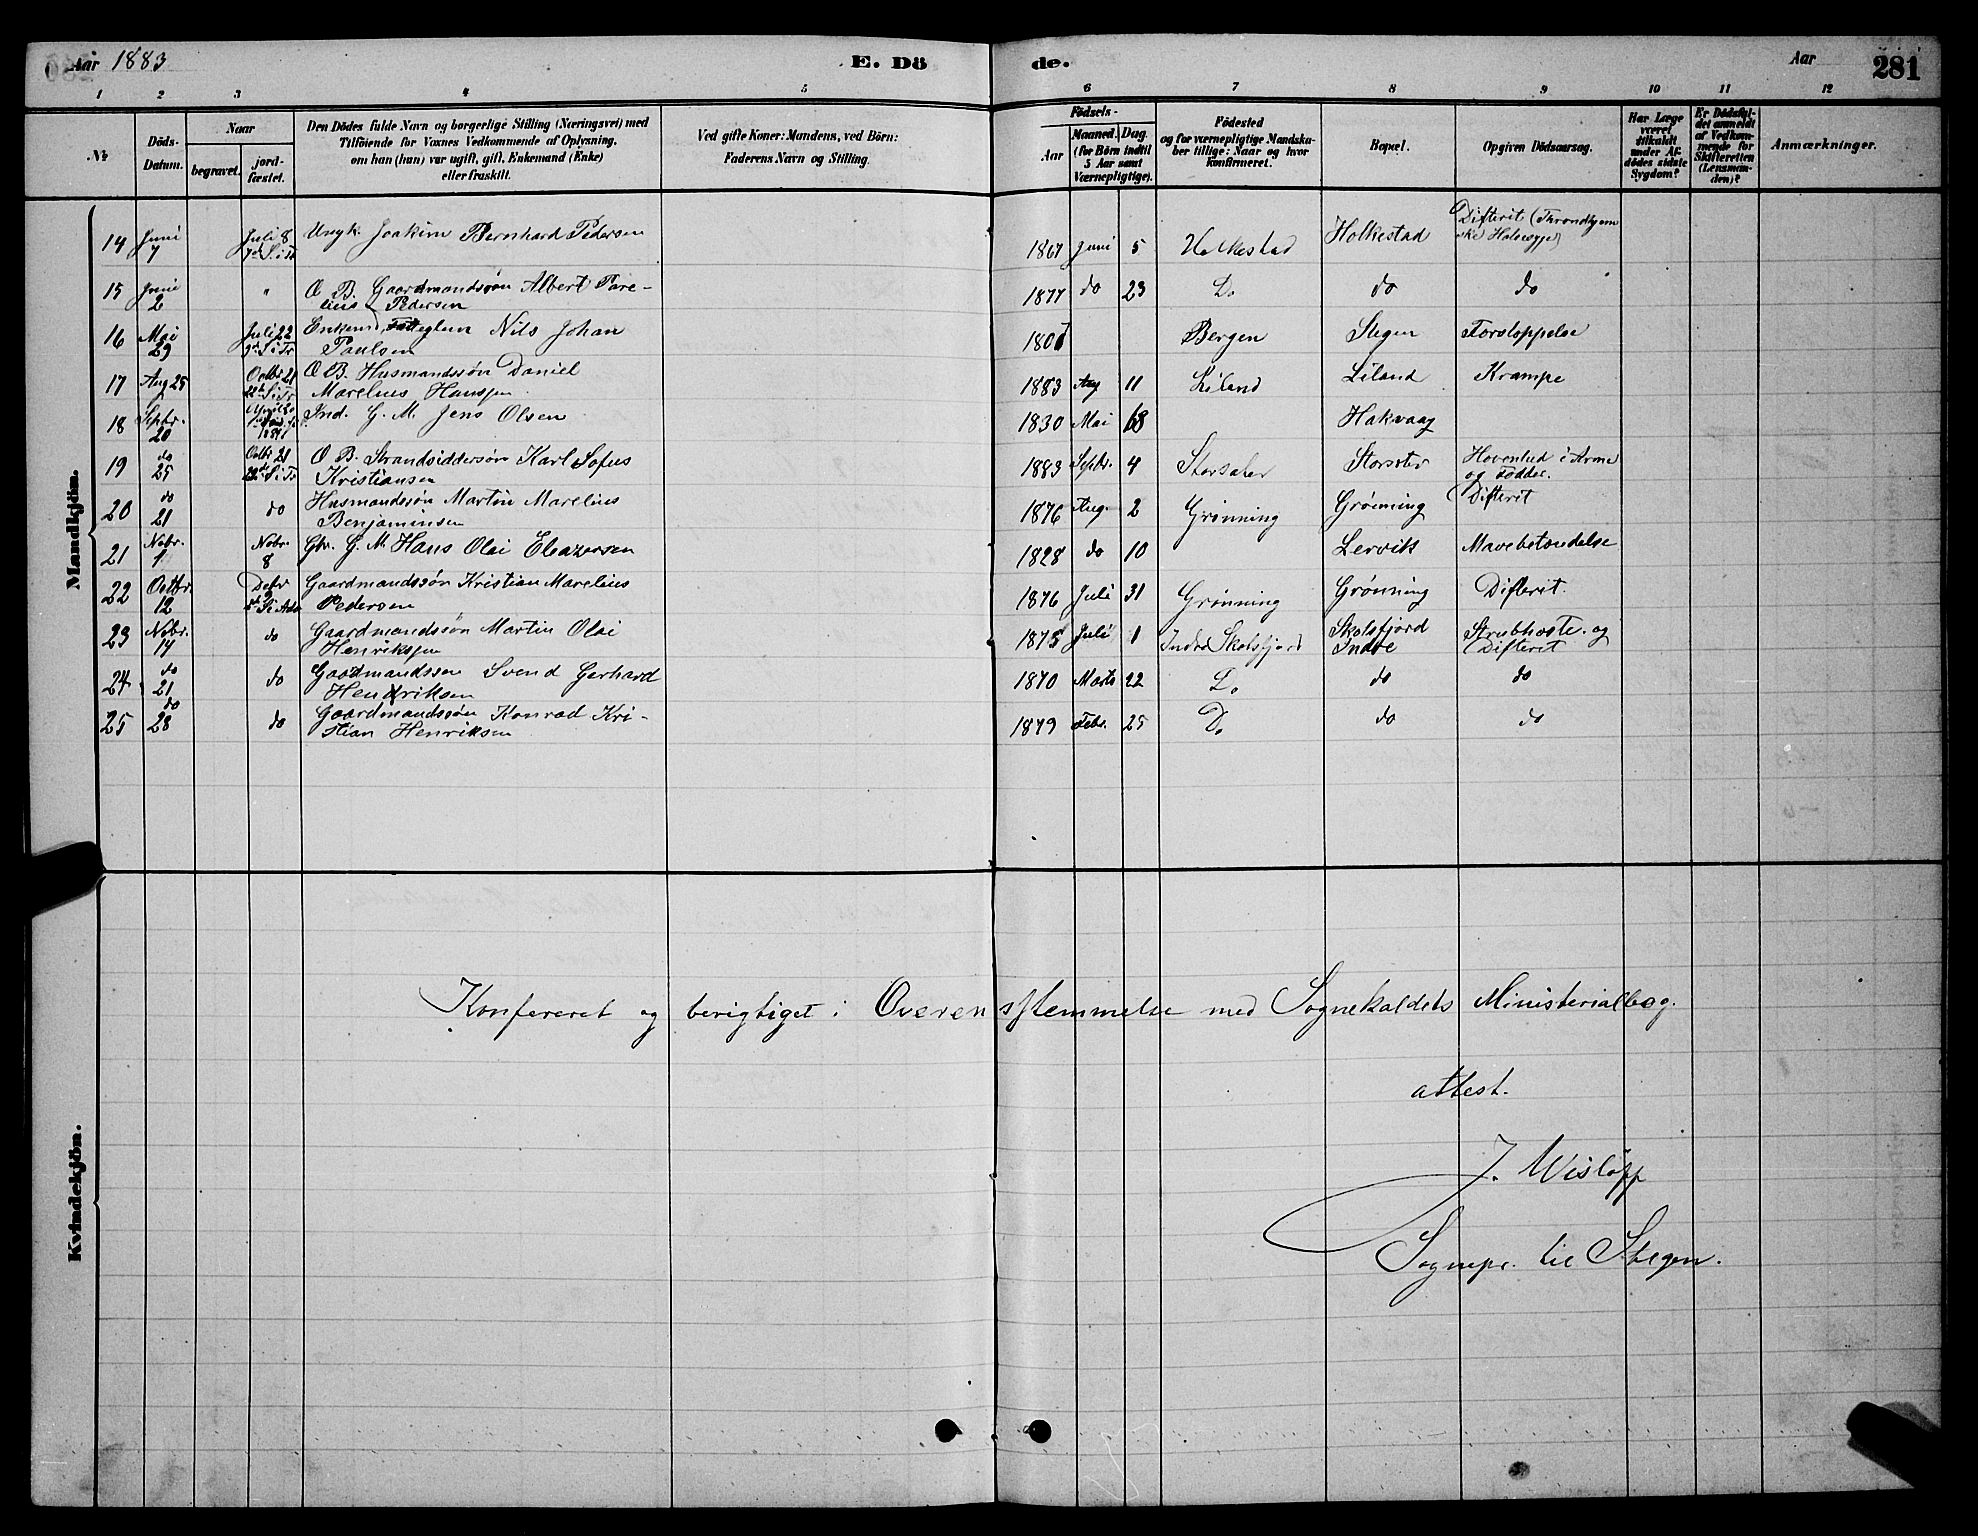 Aar 1883 E. Dö de. Aar 281
1 2 3 4 5 6 7 8 9 10 11 12
№ Döds-Datum. Naar begravet. jord-fæstet. Den Dödes fulde Navn og borgerlige Stilling (Næringsvei) med
Tilföiende for Voxnes Vedkommende af Oplysning,
om han (hun) var ugift, gift, Enkemand (Enke)
eller fraskilt.
Ved gifte Koner: Mandens, ved Börn:
Faderens Navn og Stilling.
Födsels-
Aar Maaned. Dag.
(for Börn indtil
5 Aar samt
Værnepligtige).
Födested
og for værnepligtige Mandska-
ber tillige: Naar og hvor
konfirmeret.
Bopæl.
Opgiven Dödsaarsag.
Har Læge
været
tilkaldt
under Af-
dödes sidste
Sygdom?
Er Dödsfal-
det anmeldt
af Vedkom-
mende for
Skifteretten
(Lensman-
den)?
Anmærkninger.
Mandkjön.
14 Juni 7 Juli 8 7de S i Tr Ungk. Joakim Bernhard Pedersen 1867 Juni 5 Holkestad Holkestad Difterit (Throndhjem
ske Halssyge)
15 Juni 2 " Æ B. Gaardmandssøn Albert Pare-
lius Pedersen 1877 do 23 Do do do
16 Mai 29 Juli 22 9de S i Tr Enkem, Fattiglem Nils Johan
Paulsen 1807 Bergen Stegen Forstoppelse
17 Aug 25 Octbr 21 22de S i Tr Æ B. Husmandssøn Daniel
Marelius Hanssen 1883 Aug 11 Liland Liland Krampe
18 Septbr. 20 April 20 1884 Ind. G. M. Jens Olsen 1830 Mai 18 Hakvaag
19 do 25 Octbr 21 22de S i Tr Æ B. Strandsiddersøn Karl Sofus
Kristiansen 1883 Septbr. 4 Storsæter Storsæter Hovenhed i Arme
og Fødder.
20 do 21 do Husmandssøn Martin Marelius
Benjaminsen 1876 Aug. 2 Grønning Grønning Difterit
21 Nobr. 1 Nobr. 8 Gbr. G. M. Hans Olai Eleazersen 1828 do 10 Lervik Mavebetændelse
22 Octbr. 12 Debr 2 S i Adv Gaardmandssøn Kristian Marelius
Pedersen 1876 Juli 31 Grønning Grønning Difterit.
23 Nobr. 14 do Gaardmandssøn Martin Olai
Henriksen 1875 Juli 1 Indre Skolsfjord Skolsfjord
Indre Strubhoste og
Difterit
24 do 21 do Gaardmandssøn Svend Gerhard
Hendriksen 1870 Marts 22 Do do do
25 do 28 do Gaardmandssøn Konrad Kri-
stian Henriksen 1879 Febr. 25 Do do do
Kvindekjön.
Konfereret og berigtiget i Overensstemmelse med Sognekaldets Ministerialbog.
attest.
J. Wisløff
Sognepr. til Stegen.